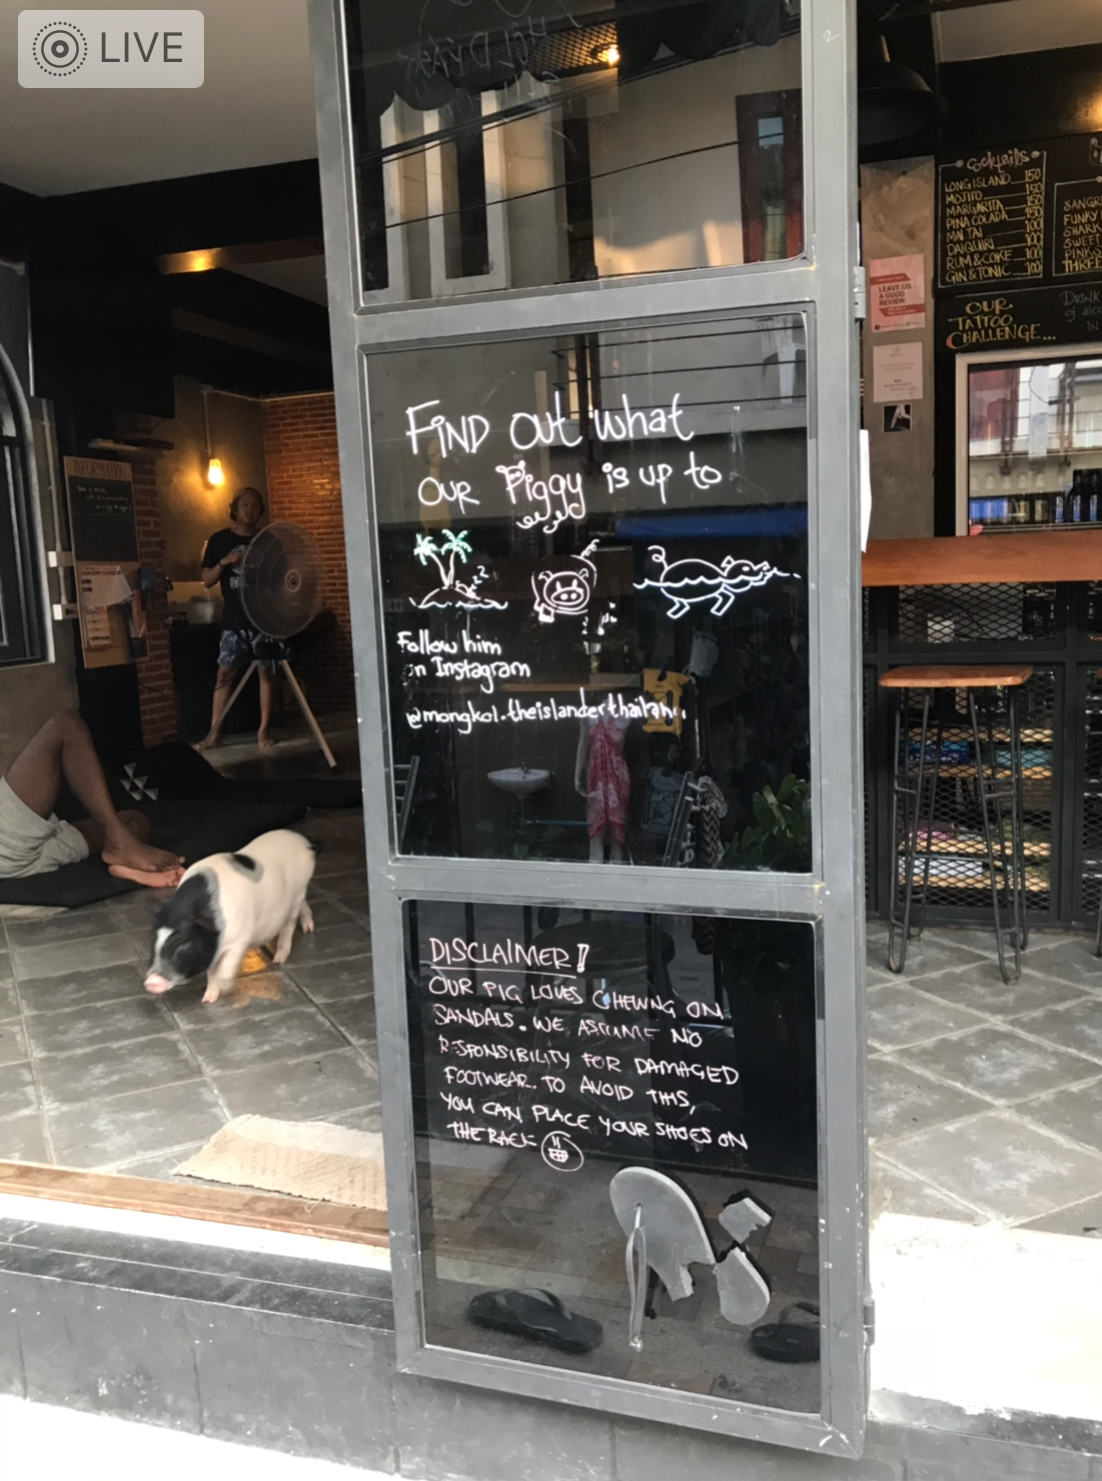 LIVE
Cocktails
LONG ISLAND 150
MOJITO 150
MARGARITA 150
PINA COLADA 150
MAI TAI 100
DAIQUIRI 100
RUM & COKE 100
GIN & TONIC 100
FUNKY
SHARK
SWEET
LEAVE US
A GOOD
REVIEW.
OUR
TATTOO
CHALLENGE...
DRINK
IN
INFORMATION
FIND OUT what
OUR Piggy is up to
zzz
Follow him
on Instagram
@mongkol.theislanderthailand
DISCLAIMER!
OUR PIG LOVES CHEWING ON
SANDALS. WE ASSUME NO
RESPONSIBILITY FOR DAMAGED
FOOTWEAR. TO AVOID THIS,
YOU CAN PLACE YOUR SHOES ON
THE RACK